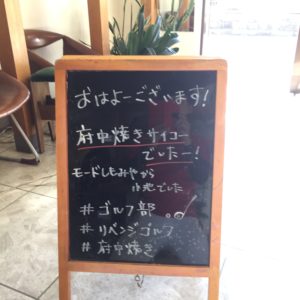 おはよーございます!
府中焼きサイコー
でしたー!
モードしもみやから
でした
#ゴルフ部
#リベンジゴルフ
#府中焼き